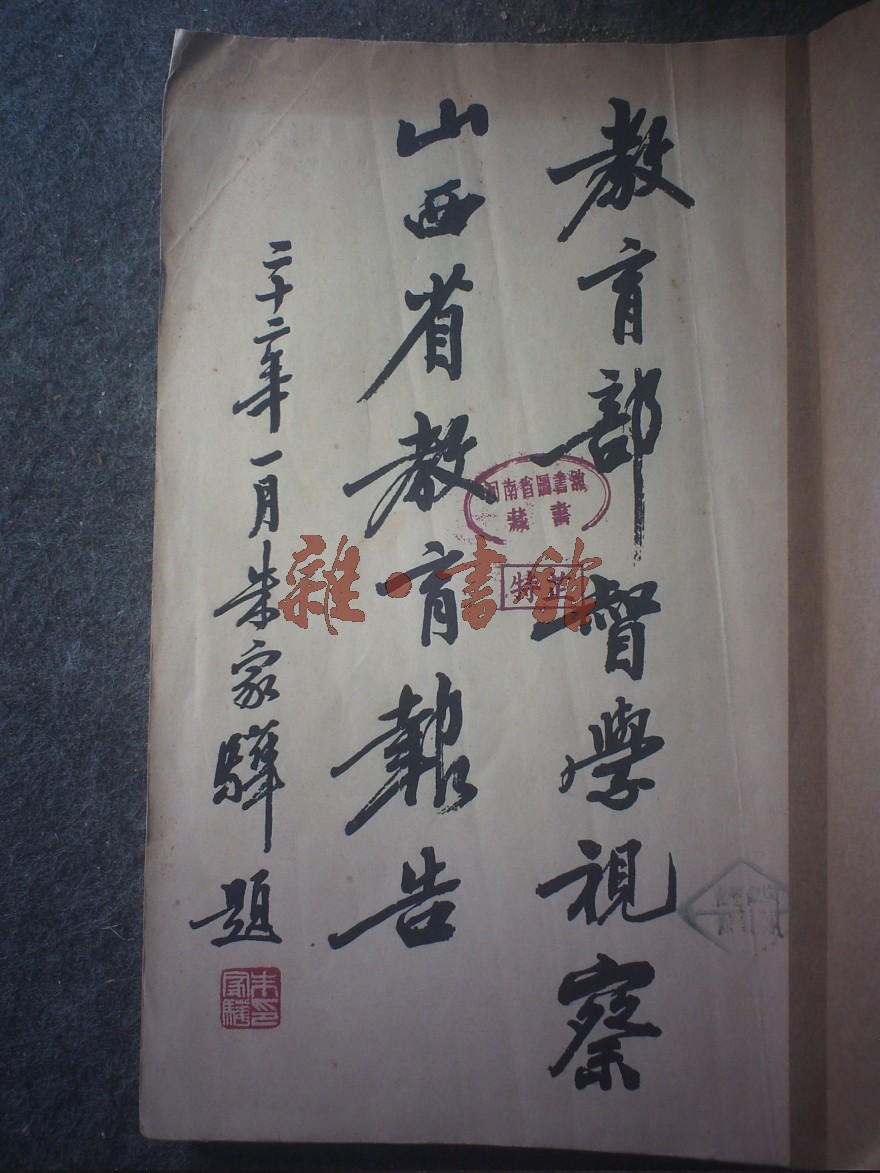 教育部督學視察
山西省教育報告
二十二年一月朱家驊題
河南省圖書館
藏書
雜·書館